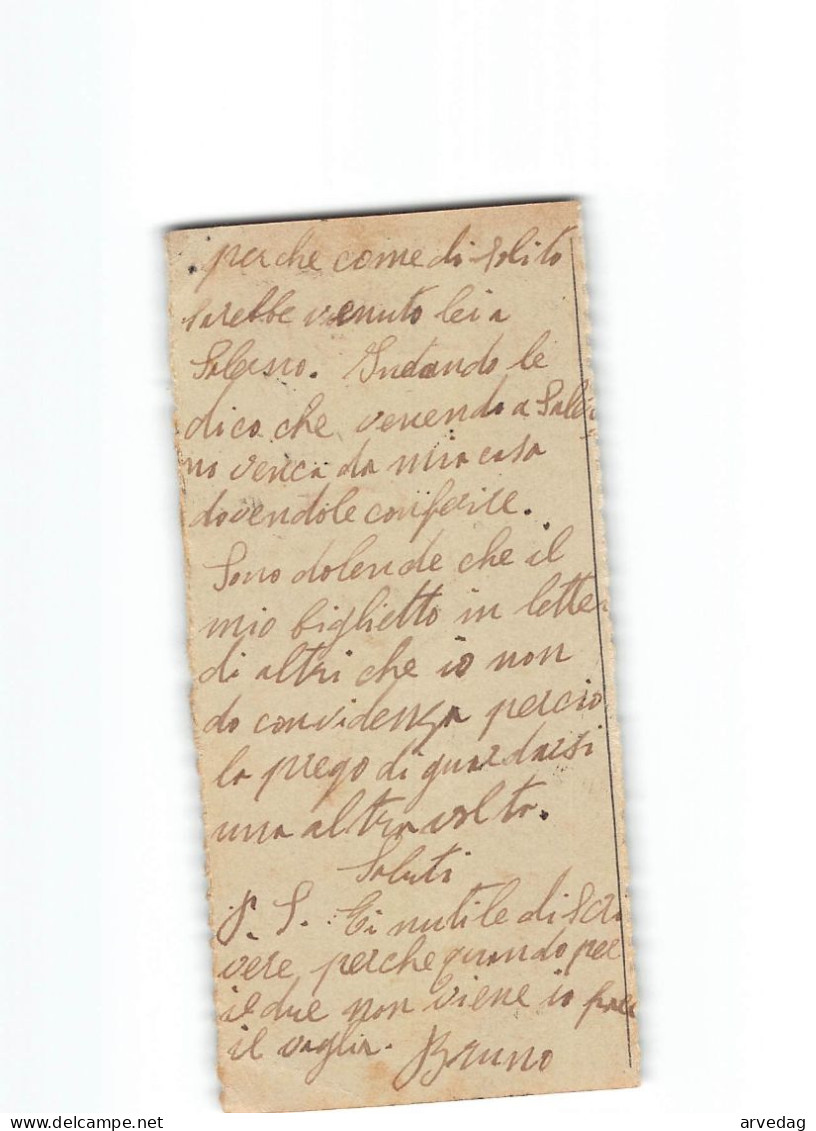 perche come di solito
sarebbe venuto lei a
Salerno. Intando le
dico che venendo a Saler
no venca da mia casa
dovendole conferire.
Sono dolende che il
mio biglietto in letter
di altri che io non
do convidenza percio
la prego di guardarsi
una altra volta.
Saluti
P. S. Ei nutile di scri
vere perche quando per
il due non viene io facc
il vaglia. Bruno
delcampe.net
arvedag